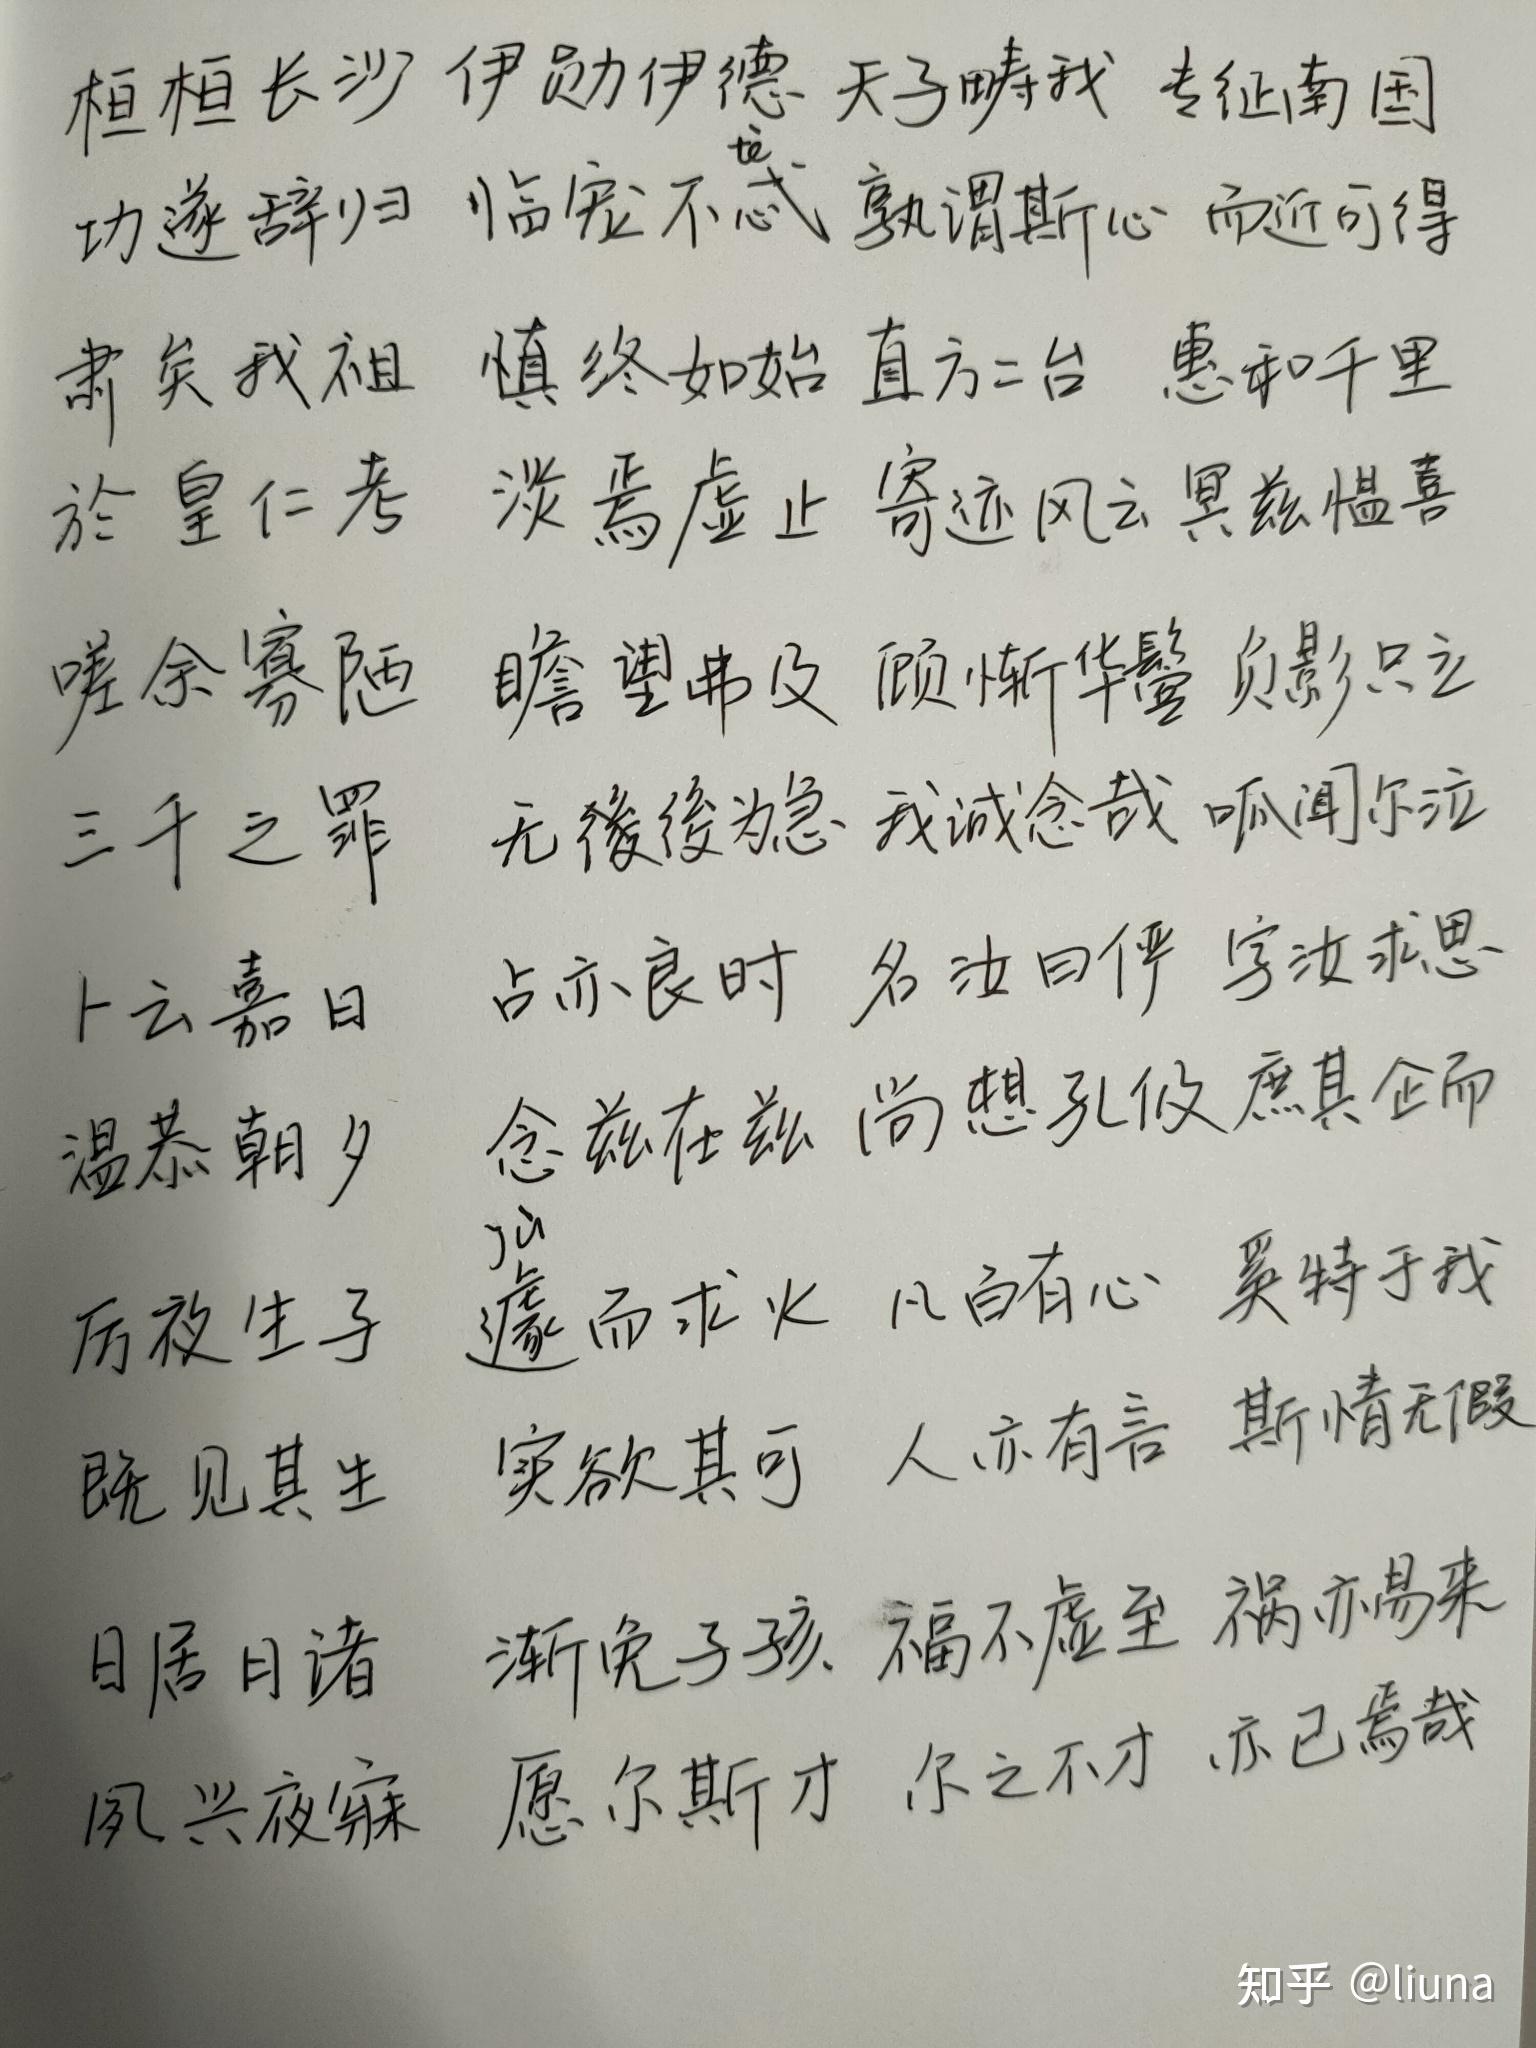 桓桓长沙 伊勋伊德 天子畴我 专征南国
te
功遂辞归 临宠不忒 孰谓斯心 而近可得
肃矣我祖 慎终如始 直方二台 惠和千里
於皇仁考 淡焉虚止 寄迹风云 冥兹愠喜
嗟余寡陋 瞻望弗及 顾惭华鬓 负影只立
三千之罪 无後後为急 我诚念哉 呱闻尔泣
卜云嘉日 占亦良时 名汝曰俨 字汝求思
温恭朝夕 念兹在兹 尚想孔伋 庶其企而
jù
厉夜生子 遽而求火 凡百有心 奚特于我
既见其生 实欲其可 人亦有言 斯情无假
日居日诸 渐免子孩 福不虚至 祸亦易来
夙兴夜寐 愿尔斯才 尔之不才 亦已焉哉
知乎 @liuna